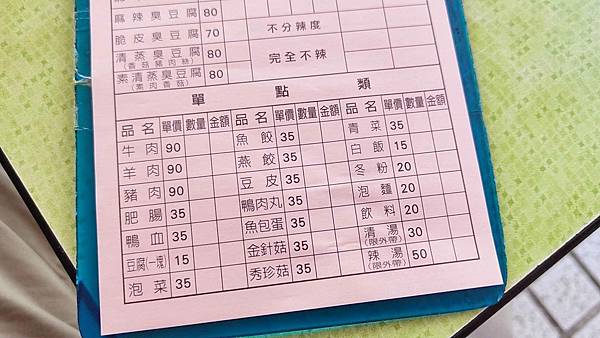 麻辣臭豆腐 80
脆皮臭豆腐 70 不分辣度
清蒸臭豆腐 80 完全不辣
(香菇豬肉絲)
素清蒸臭豆腐 80
(素肉香菇)
單點類
品名 單價 數量 金額 品名 單價 數量 金額 品名 單價 數量 金額
牛肉 90 魚餃 35 青菜 35
羊肉 90 燕餃 35 白飯 15
豬肉 90 豆皮 35 冬粉 20
肥腸 35 鴨肉丸 35 泡麵 20
鴨血 35 魚包蛋 35 飲料 20
豆腐(一塊) 15 金針菇 35 清湯 30
(限外帶)
泡菜 35 秀珍菇 35 辣湯 50
(限外帶)